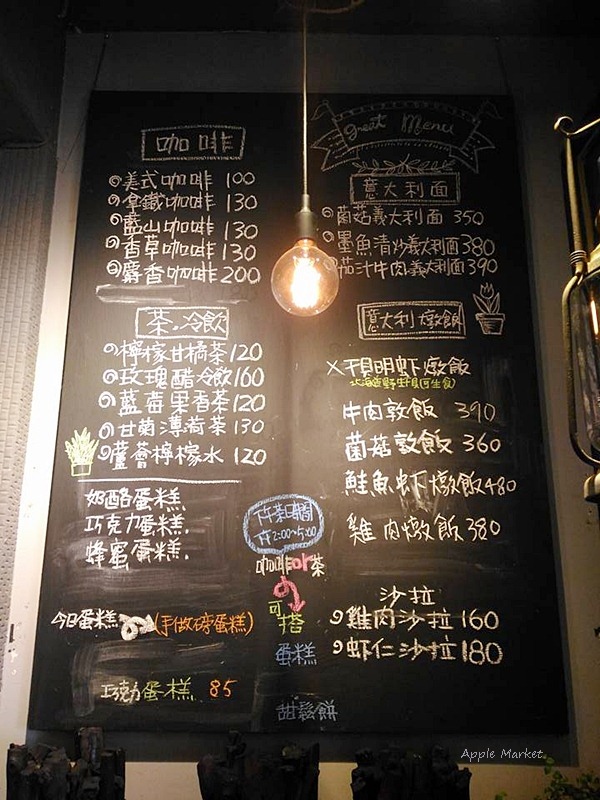 咖啡
美式咖啡 100
拿鐵咖啡 130
藍山咖啡 130
香草咖啡 130
麝香咖啡 200
茶.冷飲
檸檬甘橘茶 120
玫瑰醋冷飲 160
藍莓果香茶 120
甘菊薄荷茶 130
蘆薈檸檬水 120
奶酪蛋糕.
巧克力蛋糕.
蜂蜜蛋糕.
今日蛋糕 (手做磅蛋糕)
巧克力蛋糕 85
下午茶時間
下午2:00~5:00
咖啡or茶
可搭
蛋糕
甜鬆餅
great Menu
意大利面
菌菇義大利面 350
墨魚清炒義大利面 380
茄汁牛肉義大利面 390
意大利燉飯
干貝明蝦燉飯
北海道野生干貝(可生食)
牛肉敦飯 390
菌菇敦飯 360
鮭魚虾燉飯 480
雞肉燉飯 380
沙拉
雞肉沙拉 160
虾仁沙拉 180
Apple Market